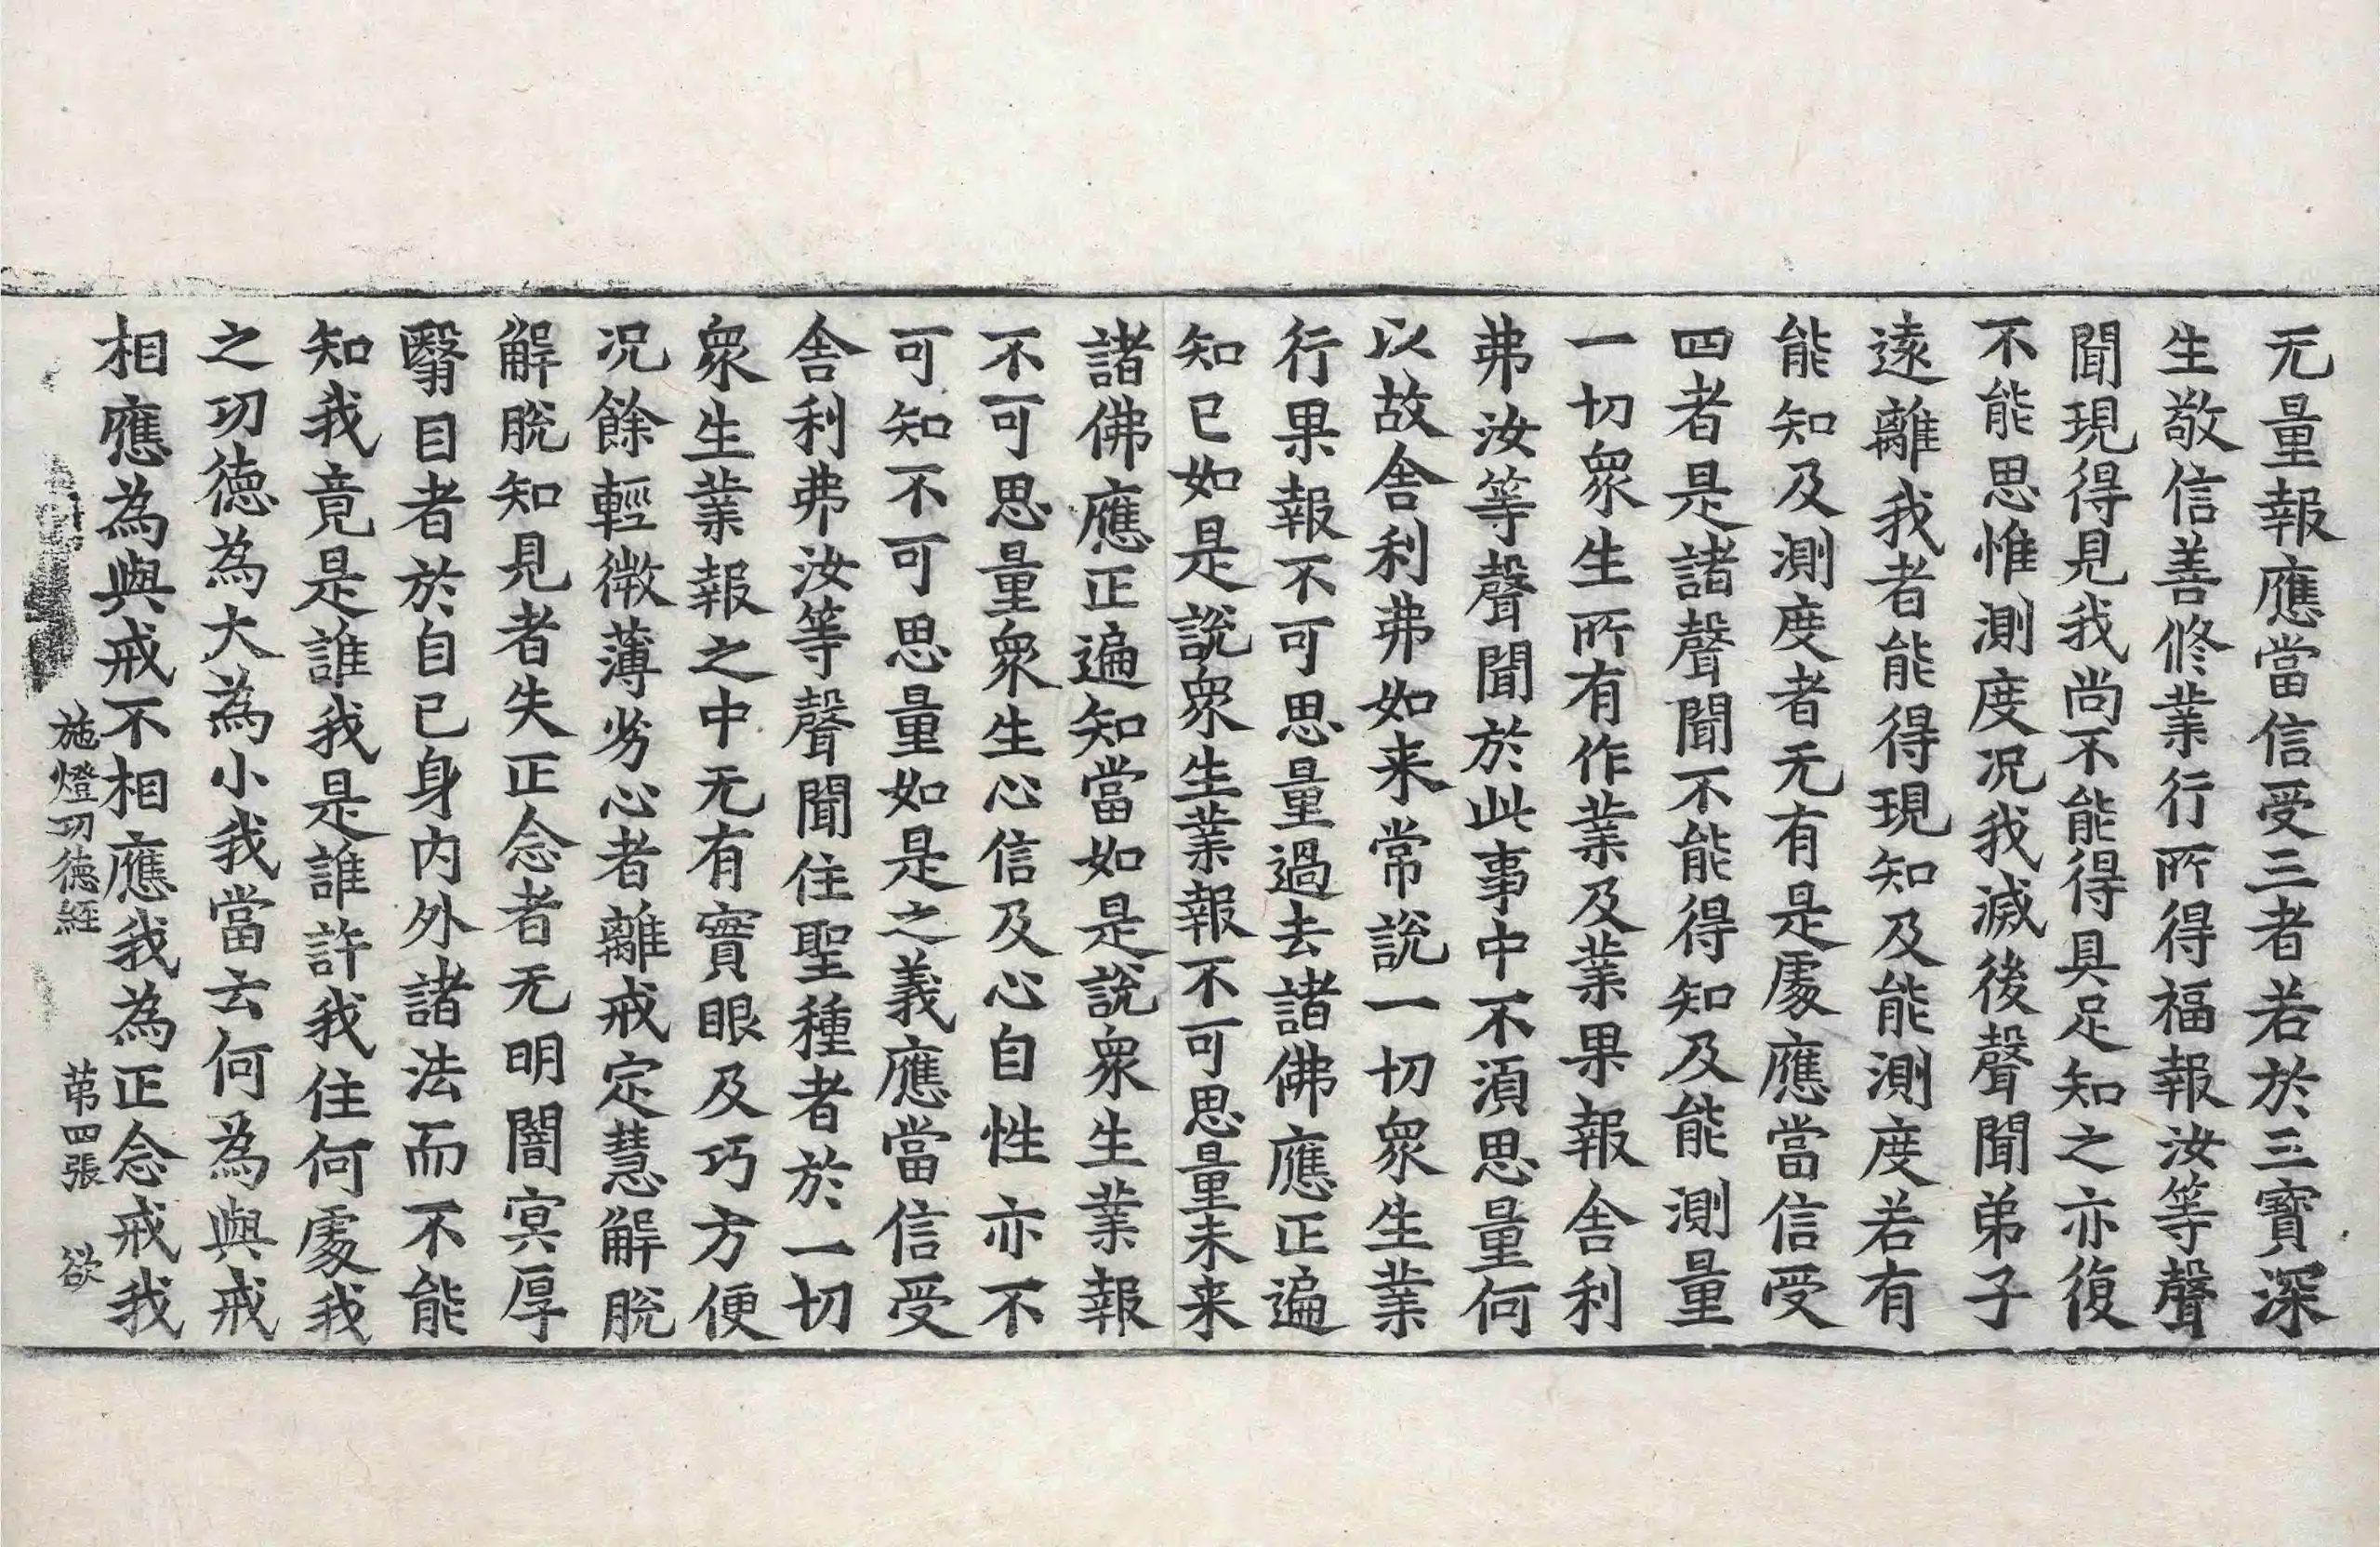 无量報應當信受三者若於三寶深
生敬信善修業行所得福報汝等聲
聞現得見我尚不能得具足知之亦復
不能思惟測度况我滅後聲聞弟子
遠離我者能得現知及能測度若有
能知及測度者无有是處應當信受
四者是諸聲聞不能得知及能測量
一切衆生所有作業及業果報舍利
弗汝等聲聞於此事中不須思量何
以故舍利弗如来常說一切衆生業
行果報不可思量過去諸佛應正遍
知已如是說衆生業報不可思量未来
諸佛應正遍知當如是說衆生業報
不可思量衆生心信及心自性亦不
可知不可思量如是之義應當信受
舍利弗汝等聲聞住聖種者於一切
衆生業報之中无有實眼及巧方便
况餘輕微薄劣心者離戒定慧解脫
解脫知見者失正念者无明闇冥厚
翳目者於自己身内外諸法而不能
知我竟是誰我是誰許我住何處我
之功德為大為小我當去何為與戒
相應為與戒不相應我為正念戒我
施燈功德經 苐四張 欲